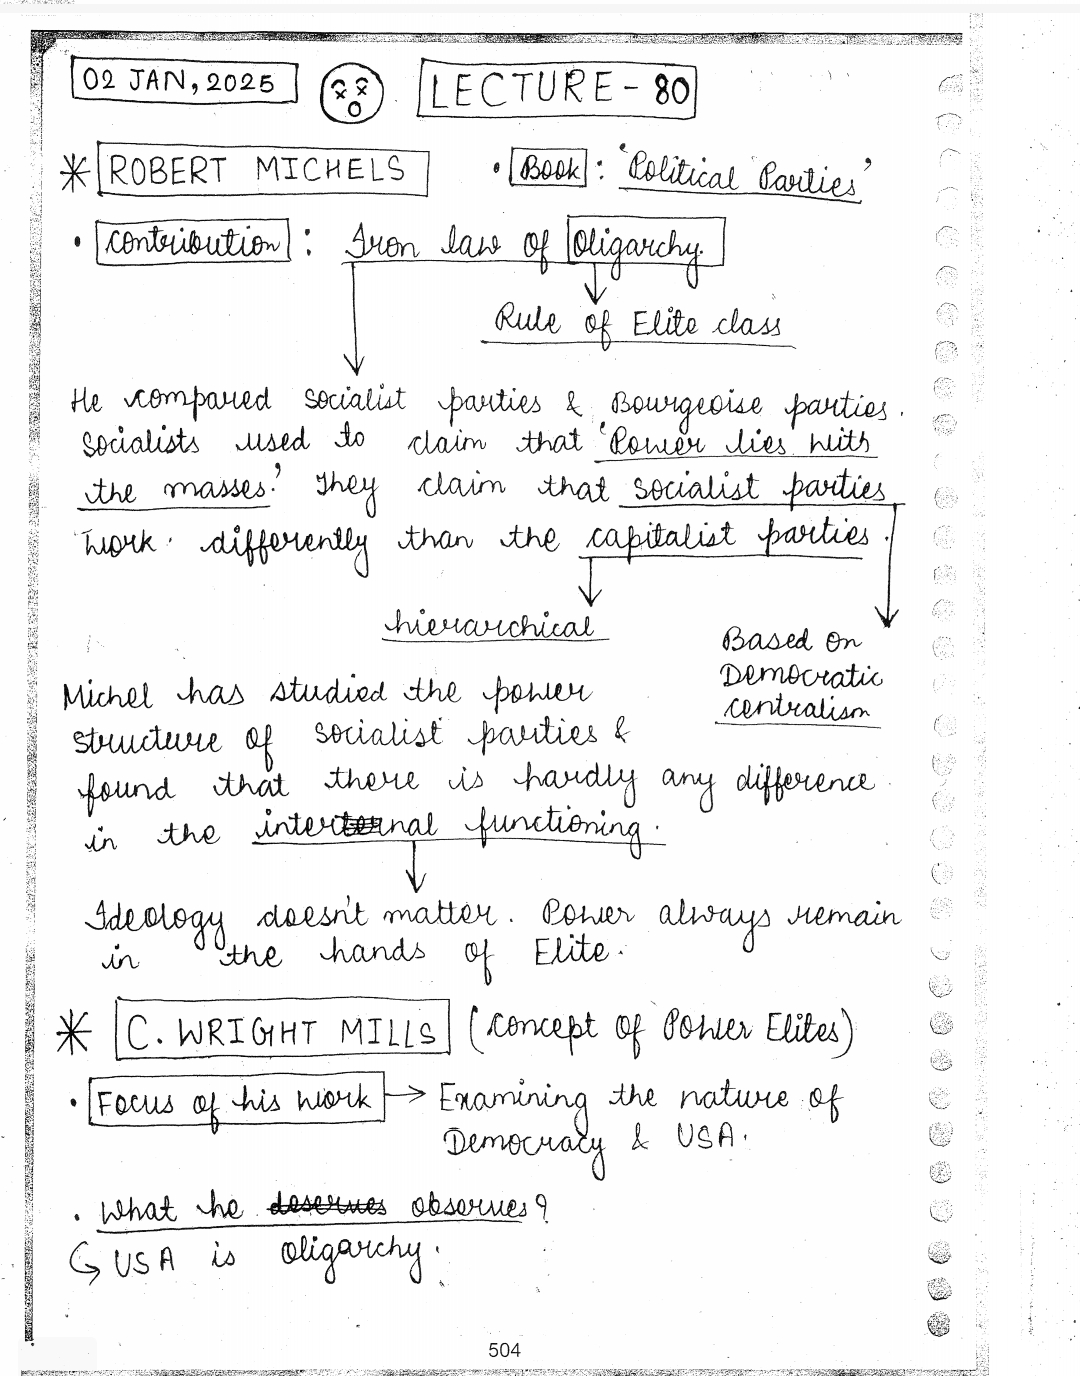 02 JAN, 2025 LECTURE - 80
* ROBERT MICHELS • Book : 'Political Parties'
• Contribution : Iron law of Oligarchy.
Rule of Elite class
He compared Socialist parties & Bourgeoise parties.
Socialists used to claim that 'Power lies with
the masses.' They claim that socialist parties
work differently than the capitalist parties.
hierarchical
Based on
Democratic
centralism
Michel has studied the power
structure of socialist parties &
found that there is hardly any difference
in the internal functioning.
Ideology doesn't matter. Power always remain
in the hands of Elite.
* C. WRIGHT MILLS (Concept of Power Elites)
• Focus of his work → Examining the nature of
Democracy & USA.
• What he deserves observes?
↳ USA is oligarchy.
504